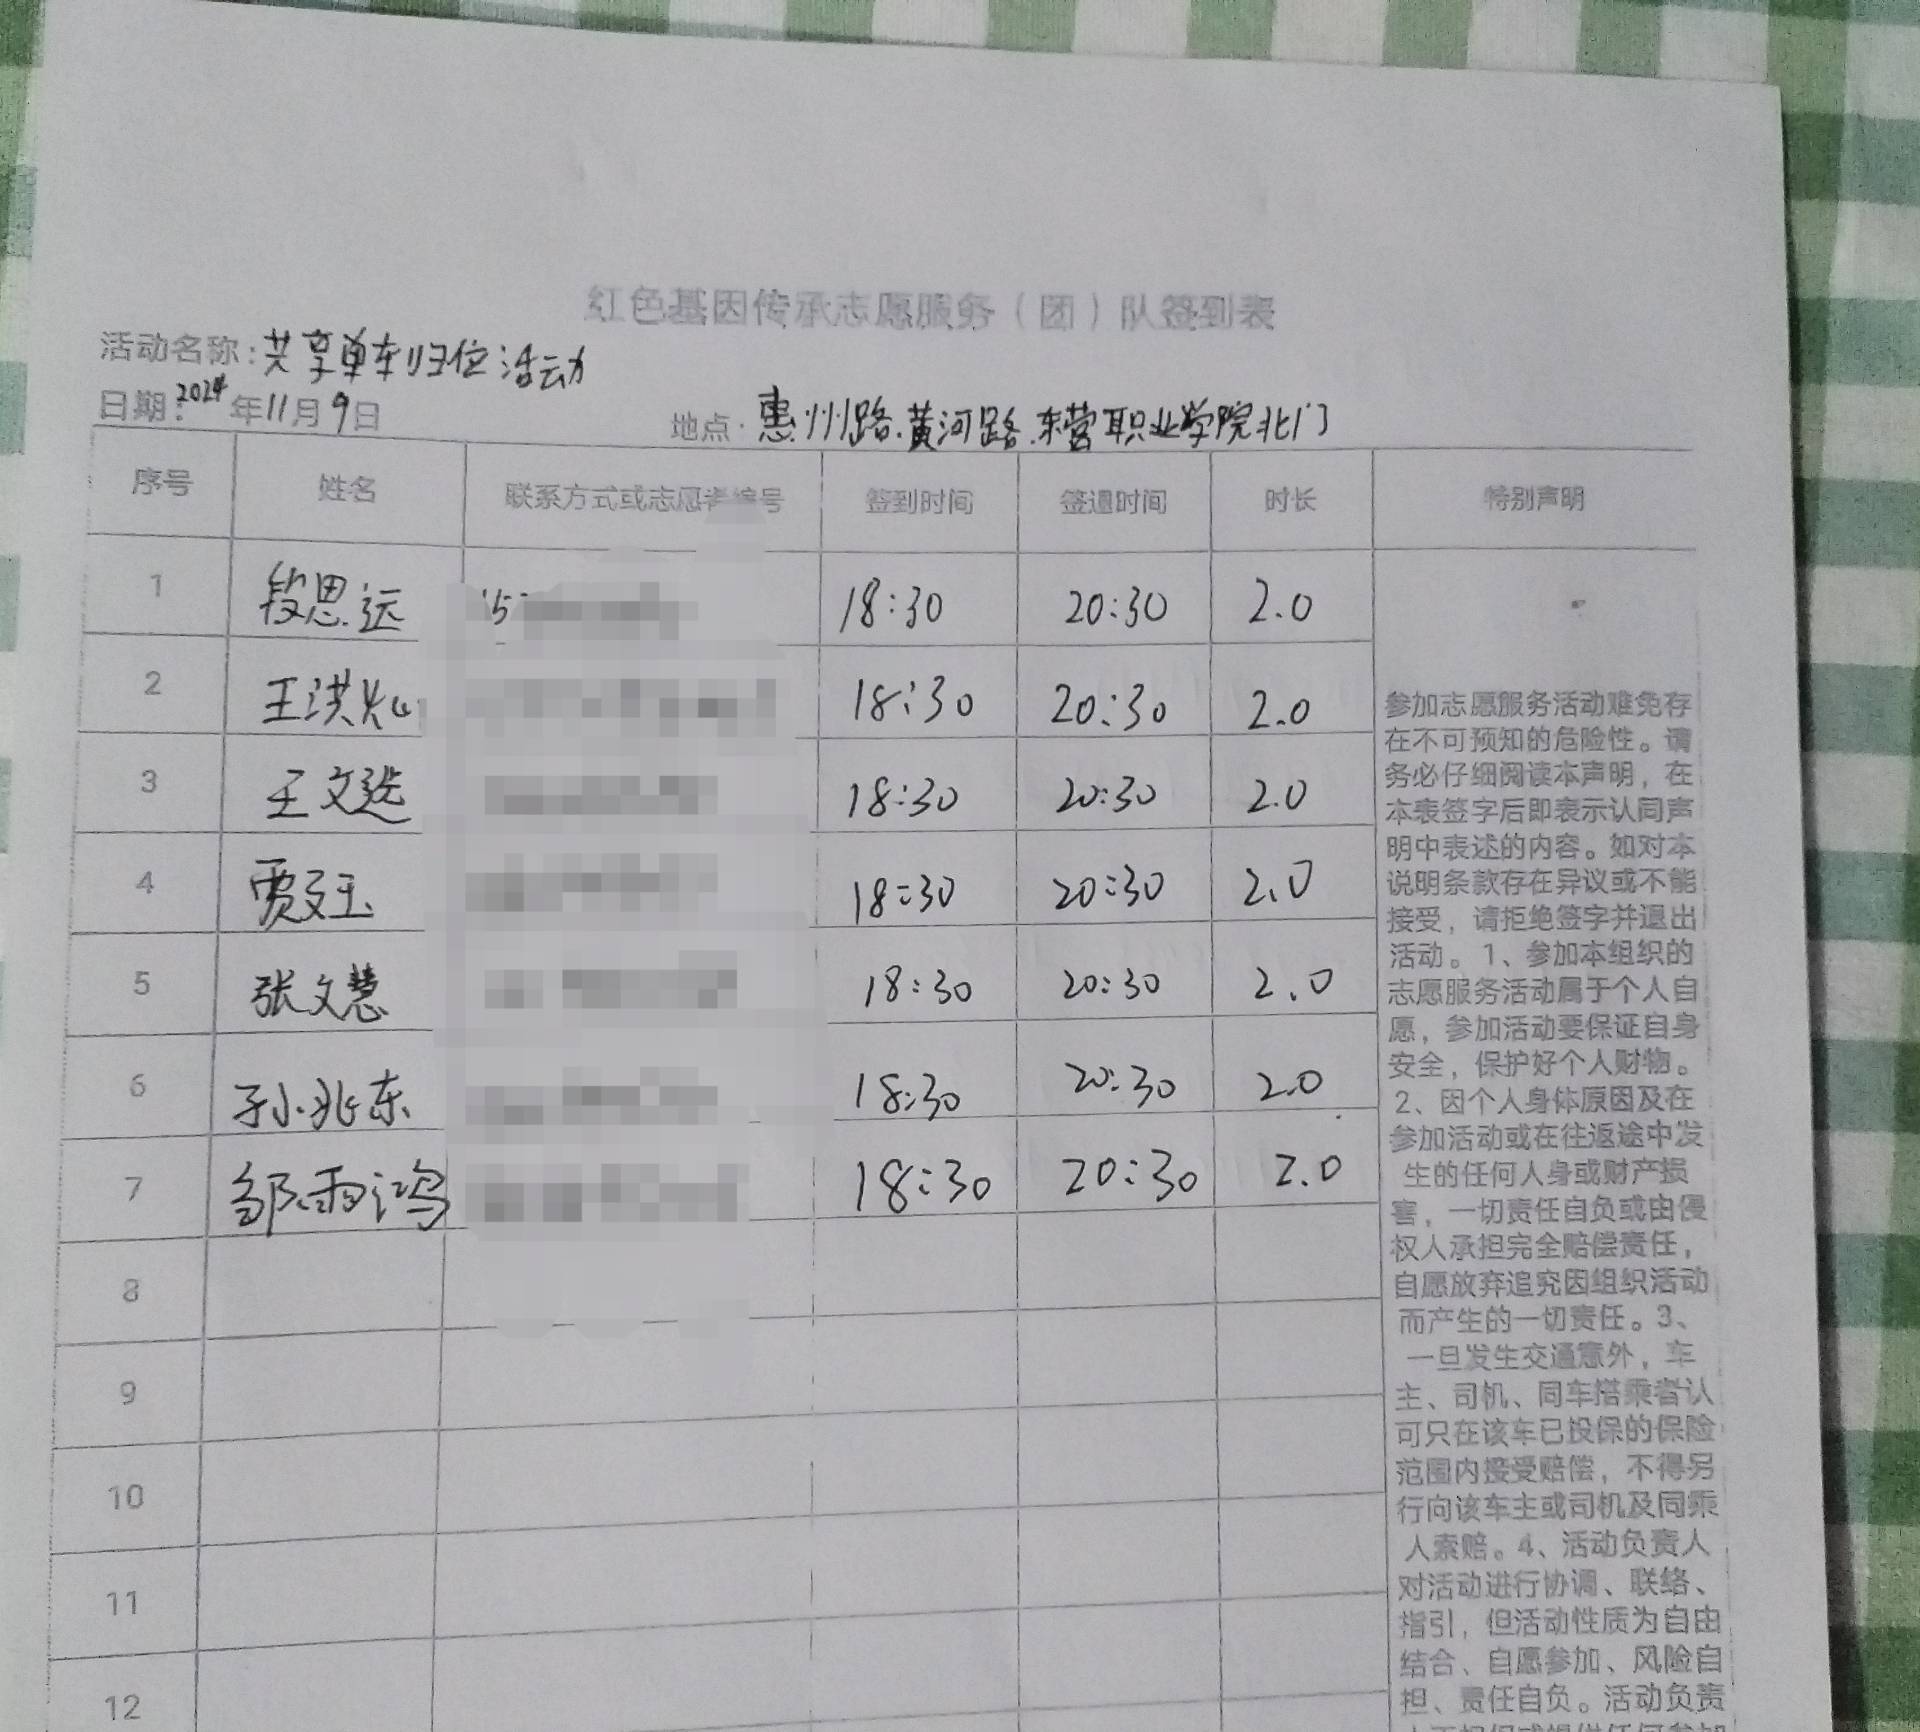 红色基因传承志愿服务（团）队签到表
活动名称:共享单车归位活动
日期:2024年11月9日
地点:惠州路.黄河路.东营职业学院北门
序号 姓名 联系方式或志愿者编号 签到时间 签退时间 时长 特别声明
1 段思远 18:30 20:30 2.0
2 王洪灿 18:30 20:30 2.0
3 王文选 18:30 20:30 2.0
4 贾玉 18:30 20:30 2.0
5 张文慧 18:30 20:30 2.0
6 孙兆东 18:30 20:30 2.0
7 邹雨鸿 18:30 20:30 2.0
8
9
10
11
12
参加志愿服务活动难免存
在不可预知的危险性。请
务必仔细阅读本声明，在
本表签字后即表示认同声
明中表述的内容。如对本
说明条款存在异议或不能
接受，请拒绝签字并退出
活动。1、参加本组织的
志愿服务活动属于个人自
愿，参加活动要保证自身
安全，保护好个人财物。
2、因个人身体原因及在
参加活动或在往返途中发
生的任何人身或财产损
害，一切责任自负或由侵
权人承担完全赔偿责任，
自愿放弃追究因组织活动
而产生的一切责任。3、
一旦发生交通意外，车
主、司机、同车搭乘者认
可只在该车已投保的保险
范围内接受赔偿，不得另
行向该车主或司机及同乘
人索赔。4、活动负责人
对活动进行协调、联络、
指引，但活动性质为自由
结合、自愿参加、风险自
担、责任自负。活动负责